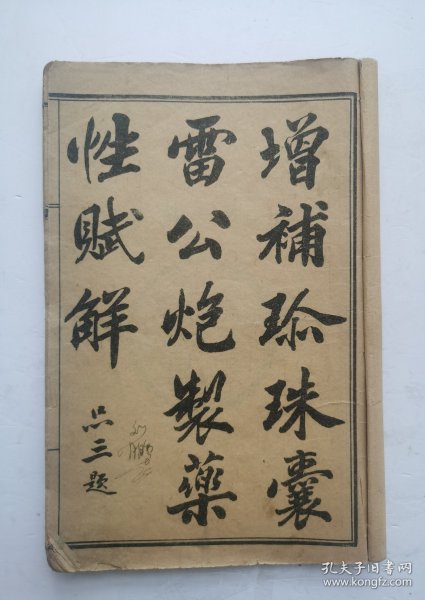 增補珍珠囊
雷公炮製藥
性賦解
品三题
孔夫子旧书网
www.kongfz.com